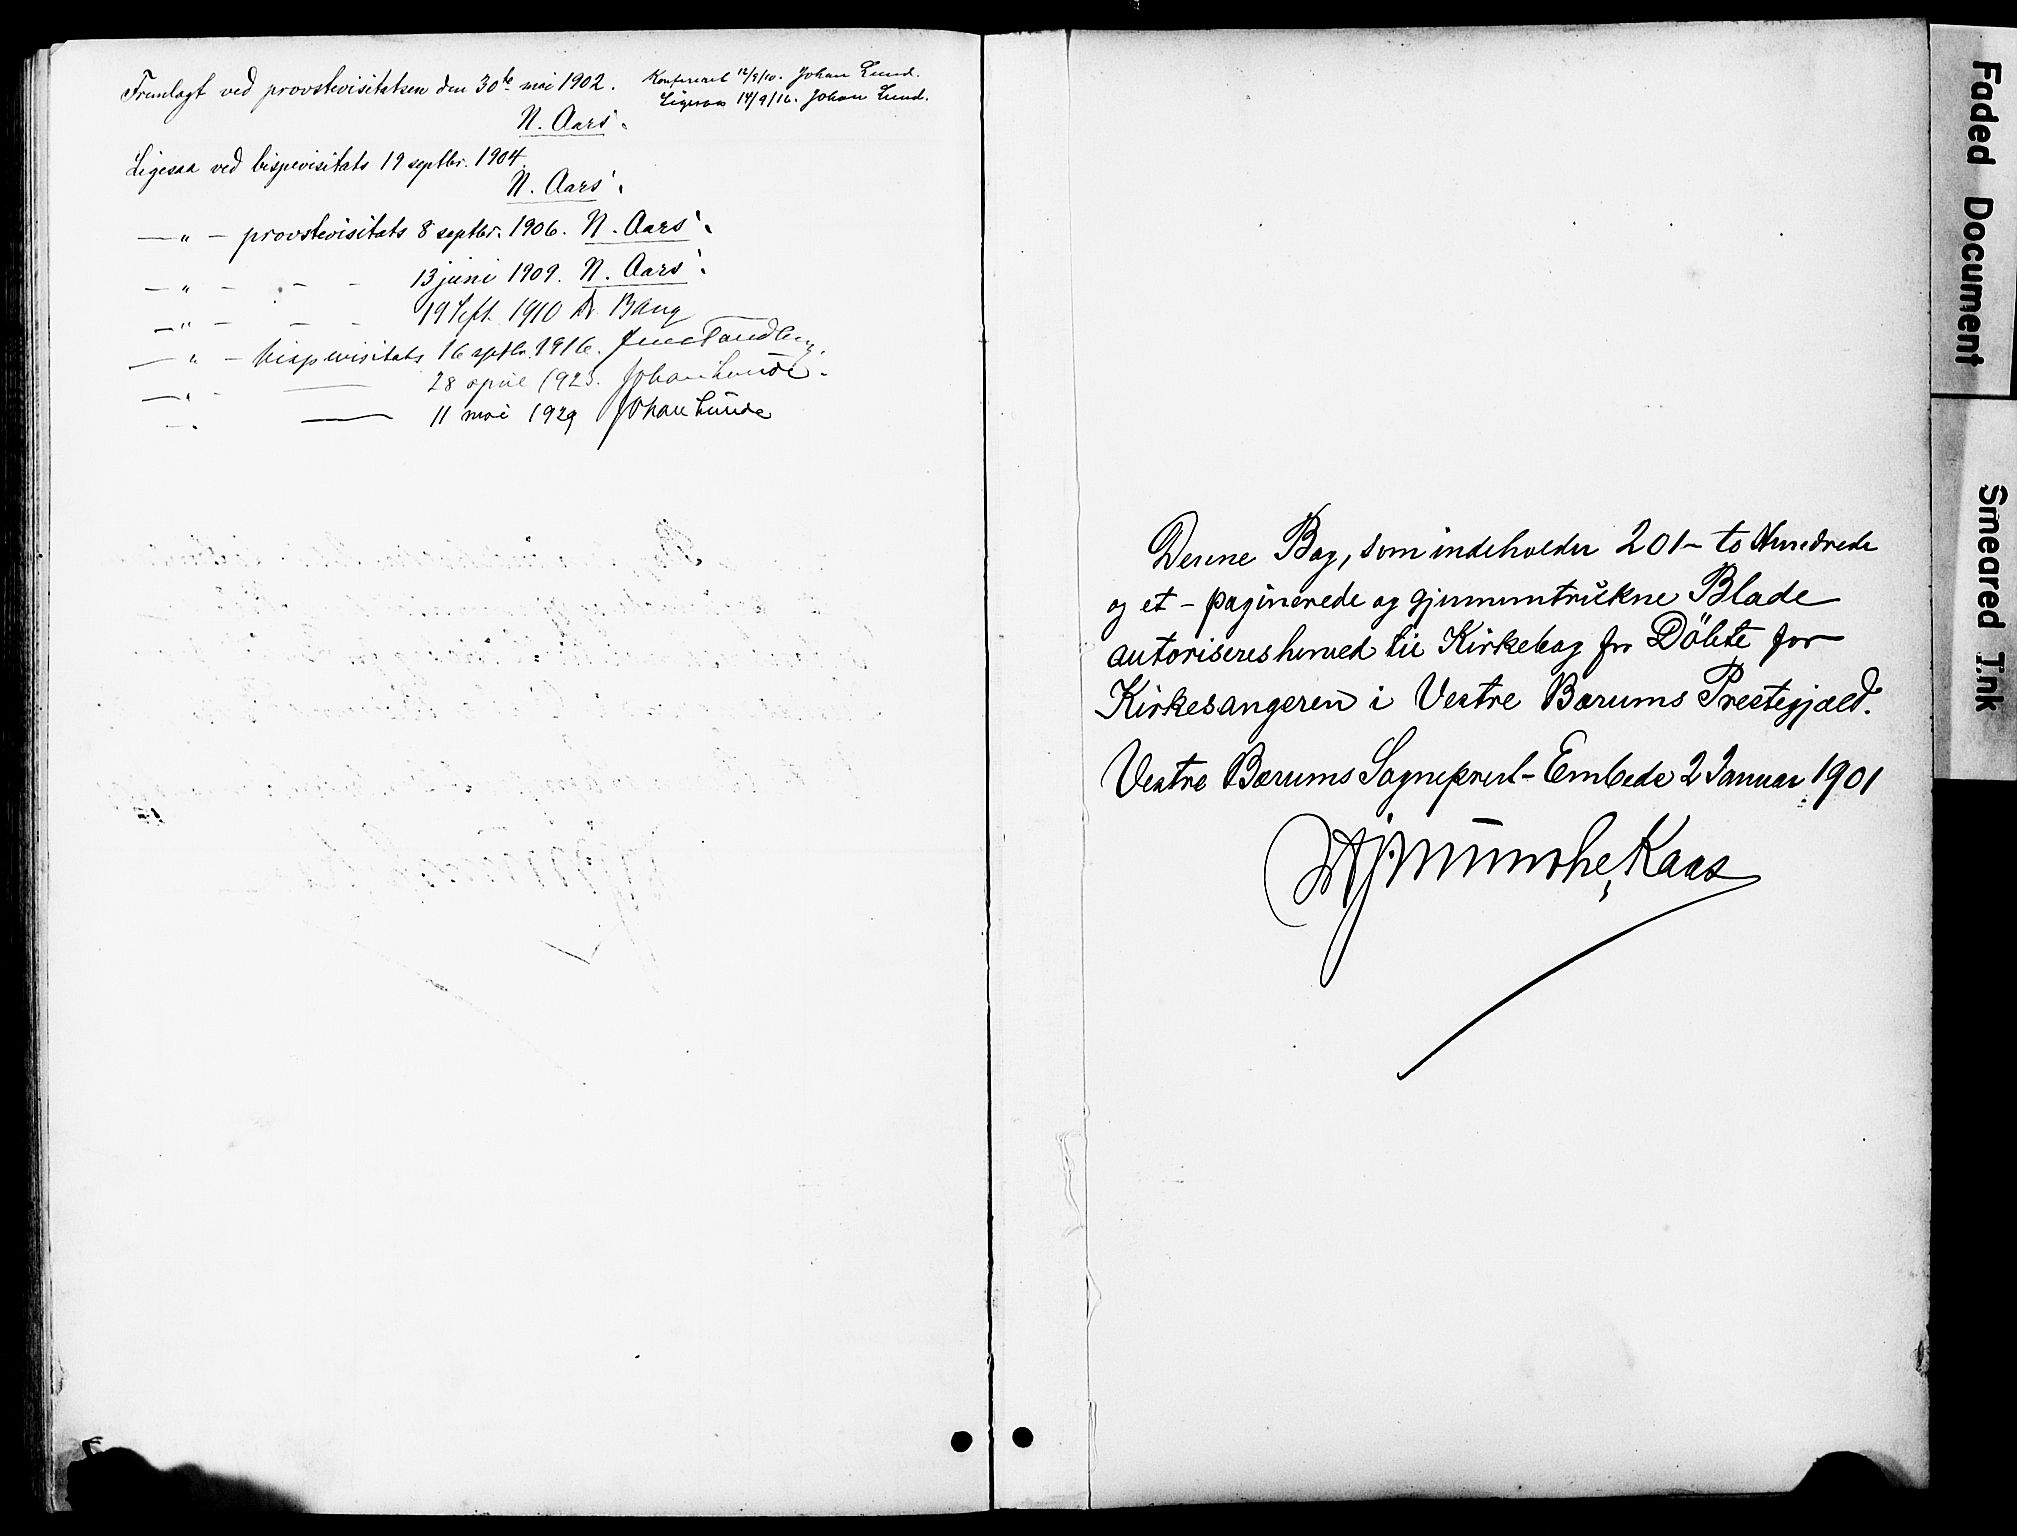 Fremlagt ved provstevisitatsen den 30te mai 1902.
N. Aars.
Konfereret 12/9/10. Johan Lund.
Ligesaa 14/9/16. Johan Lund.
Ligesaa ved bispevisitats 19 septbr. 1904.
N. Aars.
— " — provstevisitats 8 septbr. 1906. N. Aars.
— " — — — 13 juni 1909. N. Aars.
— " — — — 19 Sept. 1910 Dr. Bang
— " — bispevisitats 16 septbr. 1916. Jens Tandberg.
— " — —— 28 april 1923. Johan Lunde.
— " —— 11 mai 1929 Johan Lunde
Denne Bog, som indeholder 201 - to Hundrede
og et - paginerede og gjennemtrukne Blade
autoriseres herved til Kirkebog for Döbte for
Kirkesangeren i Vestre Bærums Prestegjæld.
Vestre Bærums Sogneprest-Embede 2 Januar 1901
Munthe Kaas
Faded Document
Smeared Ink